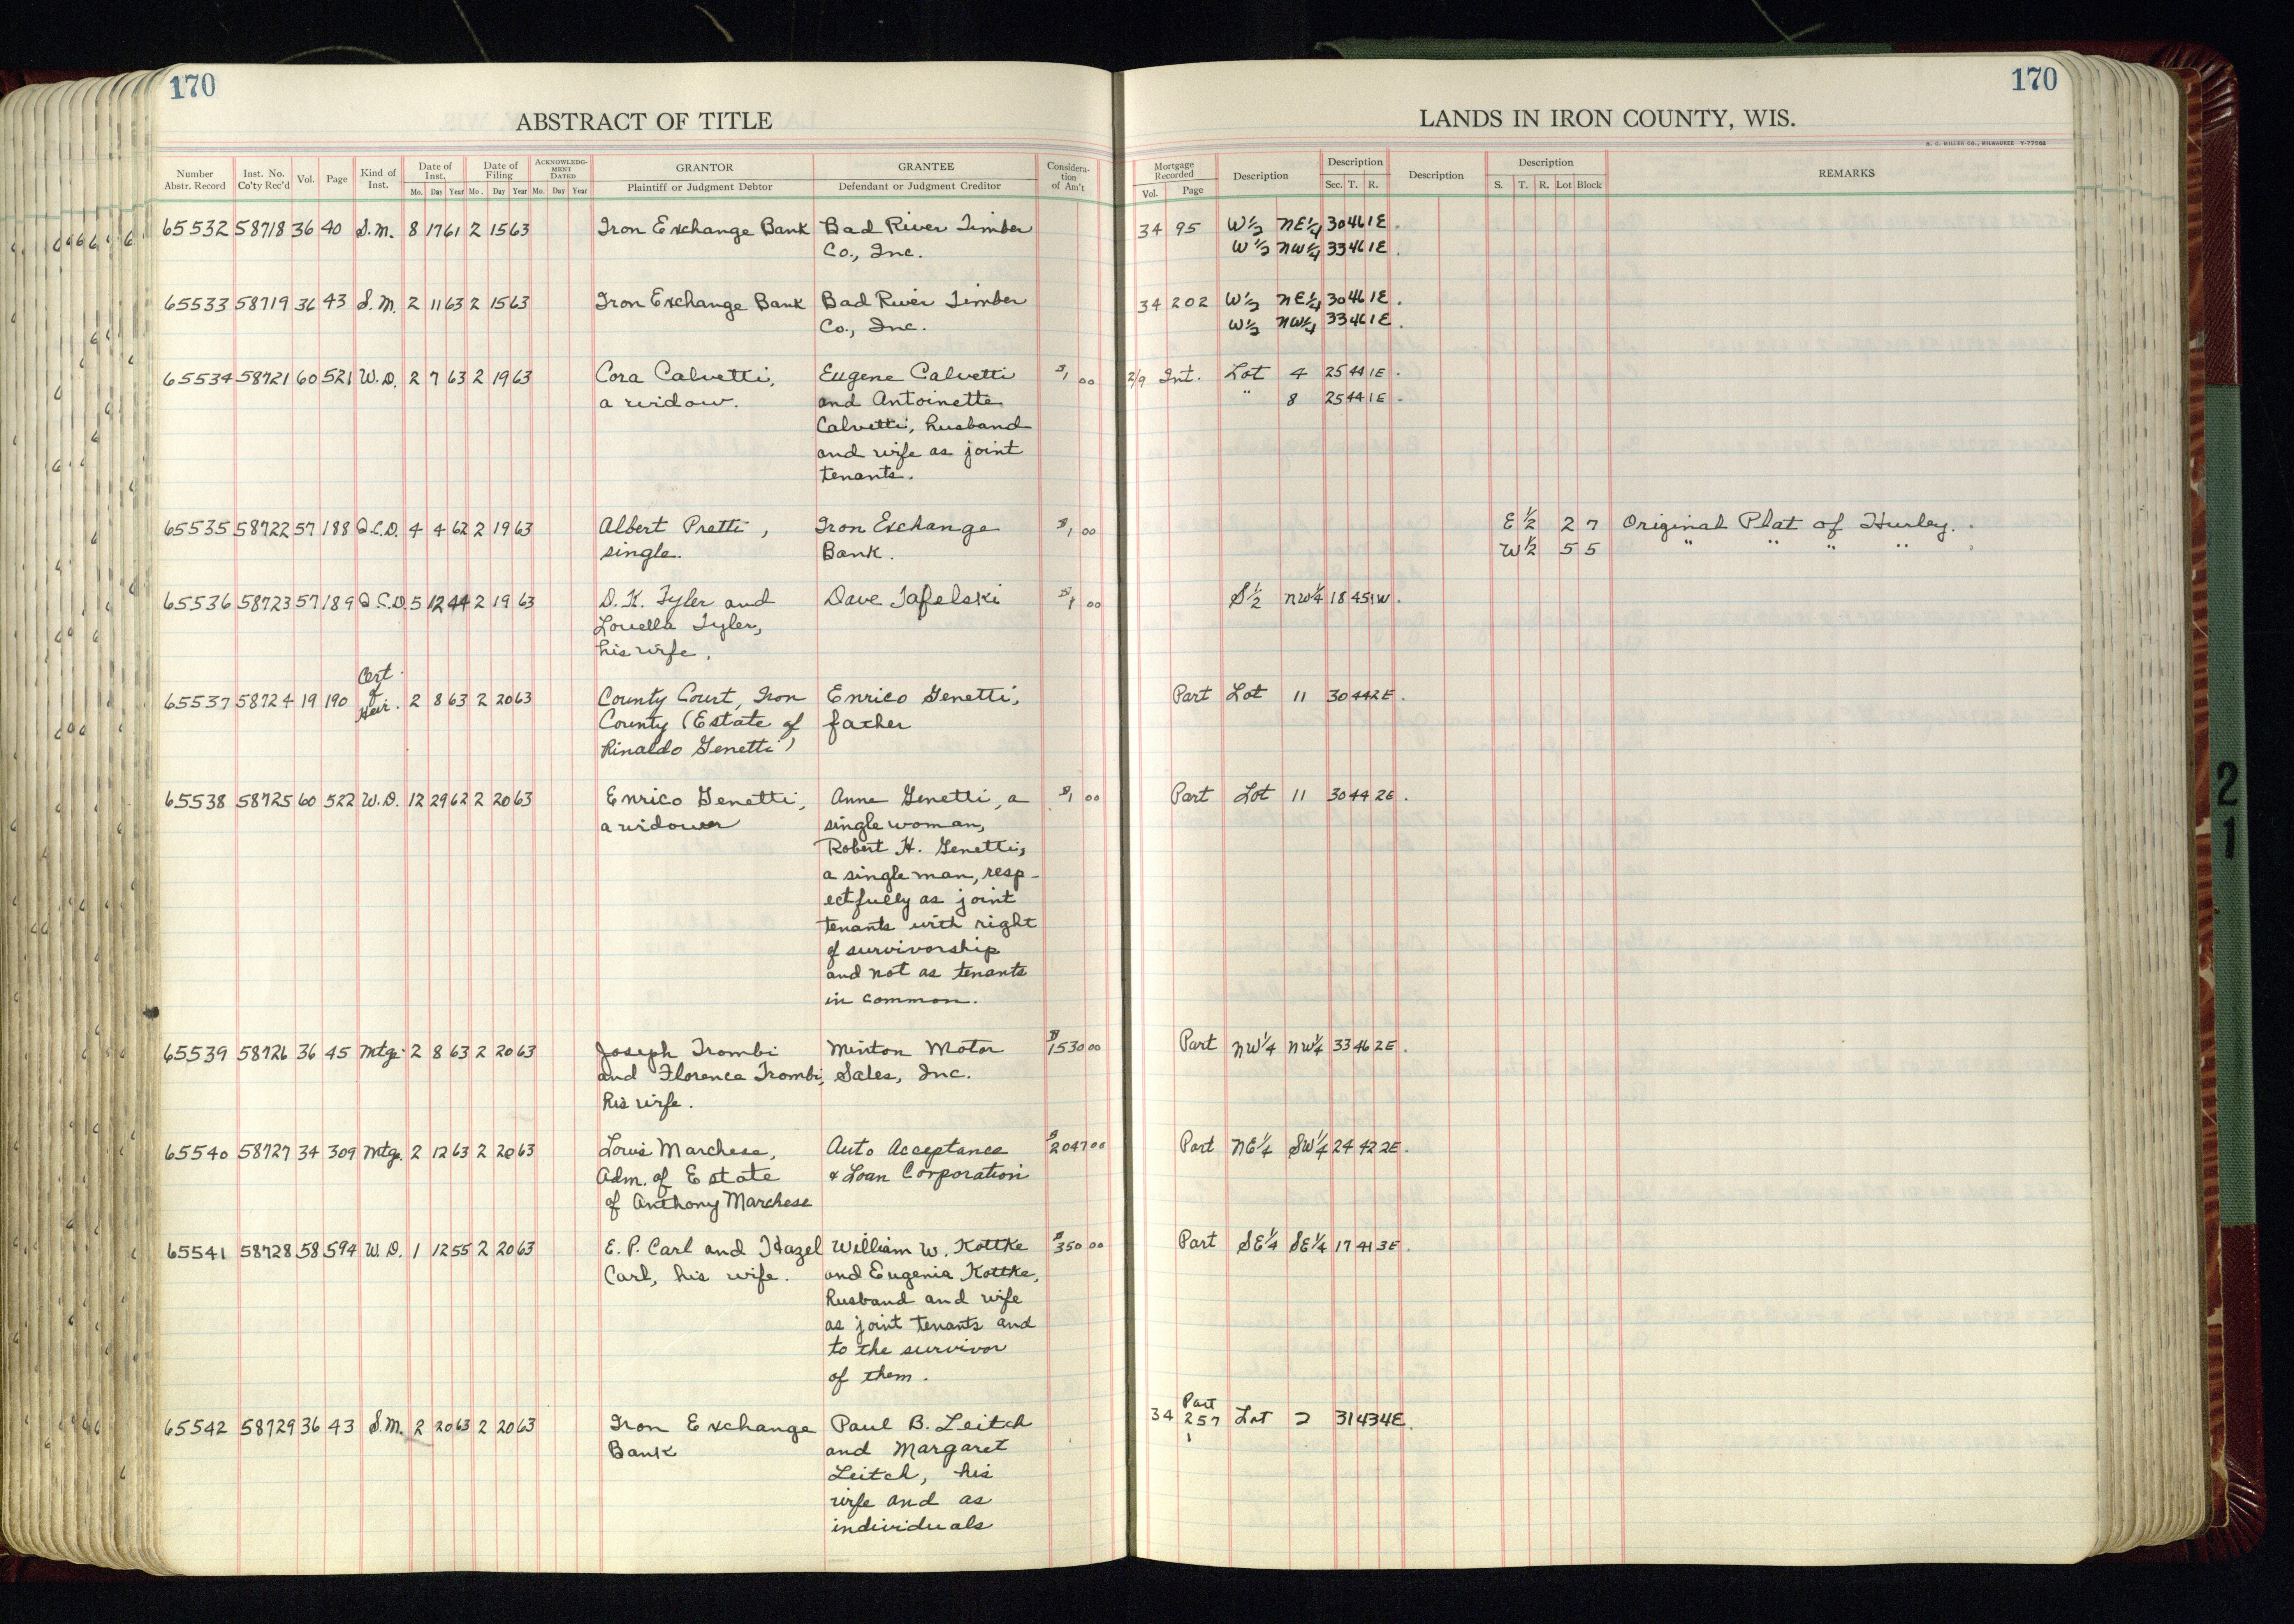 170
170
ABSTRACT OF TITLE
LANDS IN IRON COUNTY, WIS.
H. C. MILLER CO., MILWAUKEE Y-77068
Number Abstr. Record Inst. No. Co'ty Rec'd Vol. Page Kind of Inst. Date of Inst. Mo. Day Year Date of Filing Mo. Day Year ACKNOWLEDGMENT DATED Mo. Day Year GRANTOR Plaintiff or Judgment Debtor GRANTEE Defendant or Judgment Creditor Consideration of Am't
Mortgage Recorded Vol. Page Description Description Sec. T. R. Description Description S. T. R. Lot Block REMARKS
65532 58718 36 40 S.M. 8 17 61 2 15 63 Iron Exchange Bank Bad River Timber 34 95 W½ NE¼ 30 46 1E.
Co., Inc. W½ NW¼ 33 46 1E.
65533 58719 36 43 S.M. 2 11 63 2 15 63 Iron Exchange Bank Bad River Timber 34 202 W½ NE¼ 30 46 1E.
Co., Inc. W½ NW¼ 33 46 1E.
65534 58721 60 521 W.D. 2 7 63 2 19 63 Cora Calvetti, Eugene Calvetti $1 00 2/9 Int. Lot 4 25 44 1E.
a widow. and Antoinette " 8 25 44 1E.
Calvetti, husband
and wife as joint
tenants.
65535 58722 57 188 Q.C.D. 4 4 62 2 19 63 Albert Pretti, Iron Exchange $1 00 E½ 2 7 Original Plat of Hurley.
single. Bank. W½ 5 5 " " " "
65536 58723 57 189 Q.C.D. 5 12 44 2 19 63 D. K. Tyler and Dave Tafelski $1 00 S½ NW¼ 18 45 1W.
Louella Tyler,
his wife.
65537 58724 19 190 Cert. of Heir. 2 8 63 2 20 63 County Court, Iron Enrico Genetti, Part Lot 11 30 44 2E.
County (Estate of father
Rinaldo Genetti)
65538 58725 60 522 W.D. 12 29 62 2 20 63 Enrico Genetti, Anne Genetti, a $1 00 Part Lot 11 30 44 2E.
a widower single woman,
Robert H. Genetti,
a single man, resp-
ectfully as joint
tenants with right
of survivorship
and not as tenants
in common.
65539 58726 36 45 Mtge. 2 8 63 2 20 63 Joseph Trombi Minton Motor $1530 00 Part NW¼ NW¼ 33 46 2E.
and Florence Trombi, Sales, Inc.
his wife.
65540 58727 34 309 Mtge. 2 12 63 2 20 63 Louis Marchese, Auto Acceptance $2047 00 Part NE¼ SW¼ 24 42 2E.
Adm. of Estate & Loan Corporation
of Anthony Marchese
65541 58728 58 594 W.D. 1 12 55 2 20 63 E. P. Carl and Hazel William W. Kottke $350 00 Part SE¼ SE¼ 17 41 3E.
Carl, his wife. and Eugenia Kottke,
husband and wife
as joint tenants and
to the survivor
of them.
65542 58729 36 43 S.M. 2 20 63 2 20 63 Iron Exchange Paul B. Leitch 34 257 Part Lot 2 31 43 4E.
Bank and Margaret
Leitch, his
wife and as
individuals
21